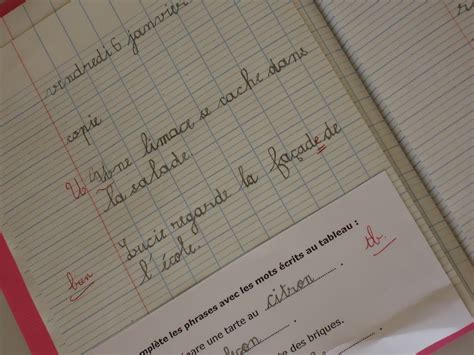 vendredi 6 janvier
copie
U Une limace se cache dans
la salade.
Lucie regarde la façade de
l'école.
bien
tb
mplète les phrases avec les mots écrits au tableau :
are une tarte au citron.
des briques.